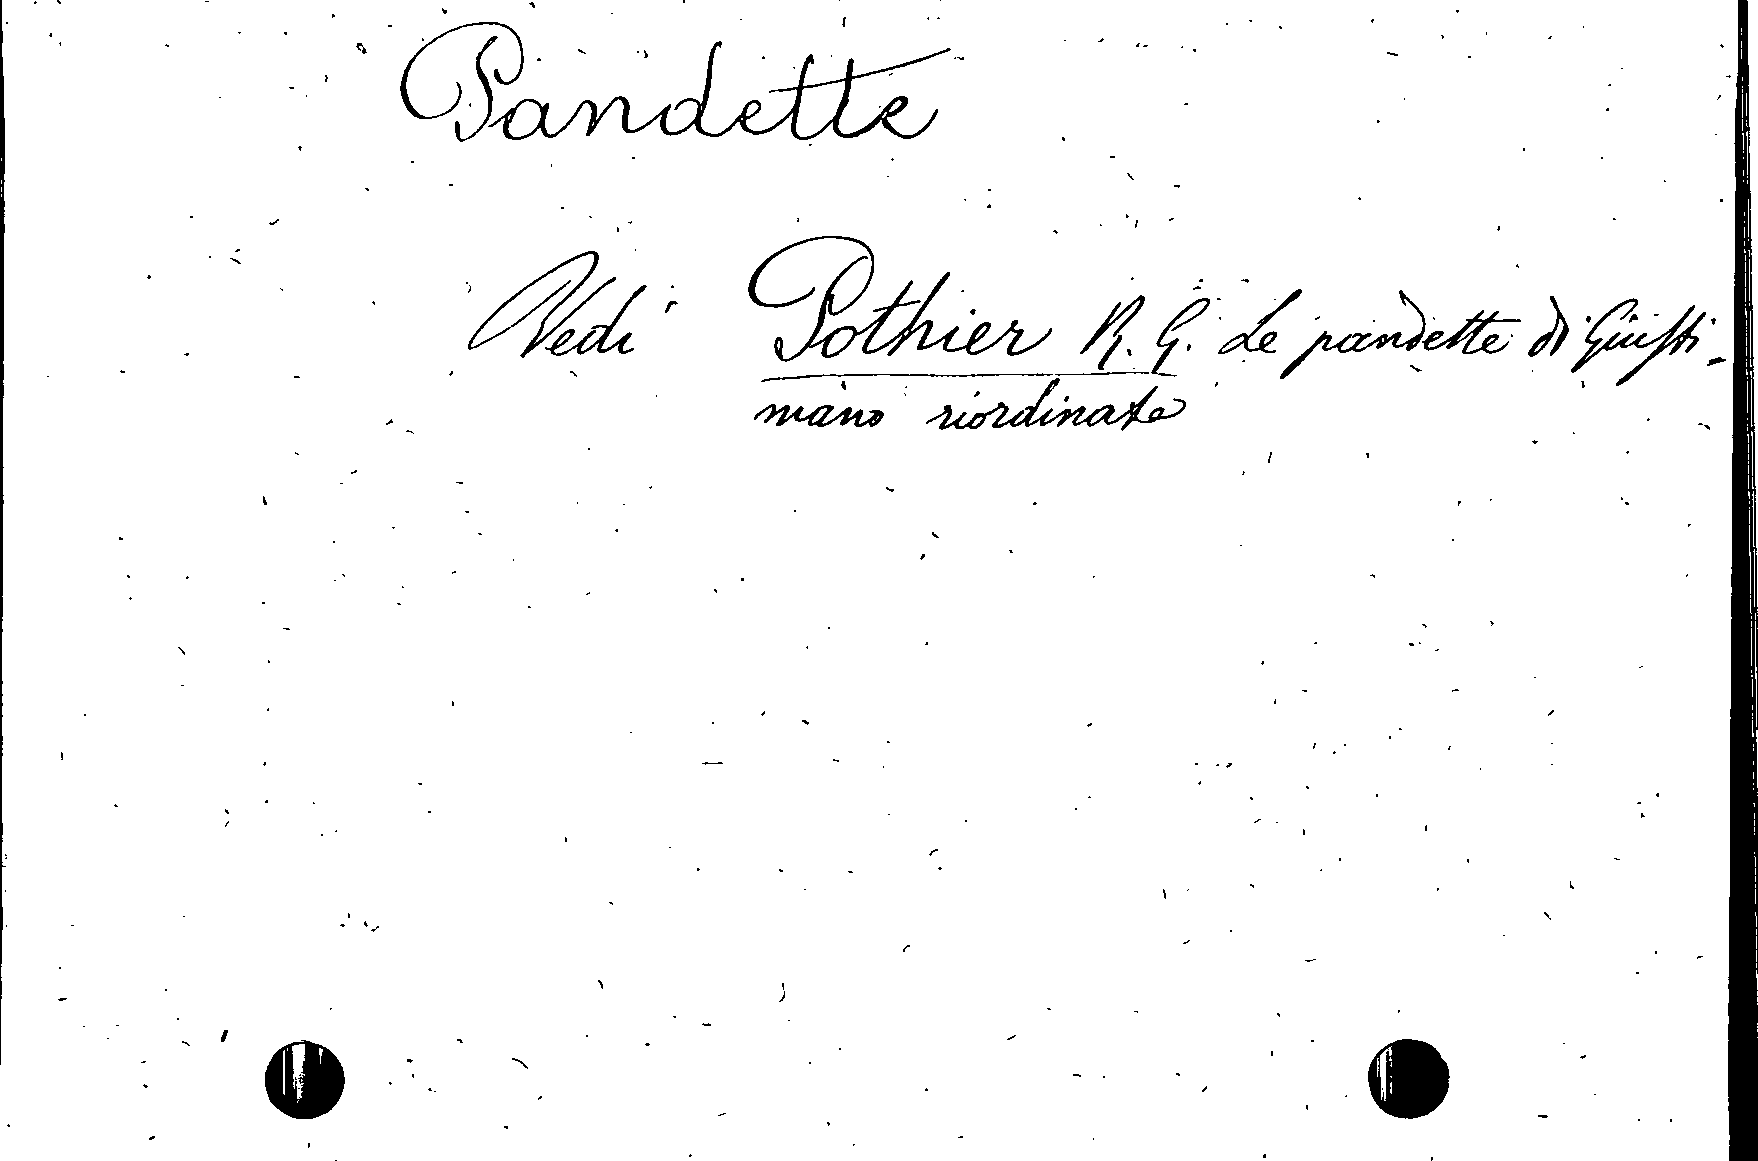 Pandette
Vedi Pothier R. G. Le pandette di Giusti-
niano riordinate